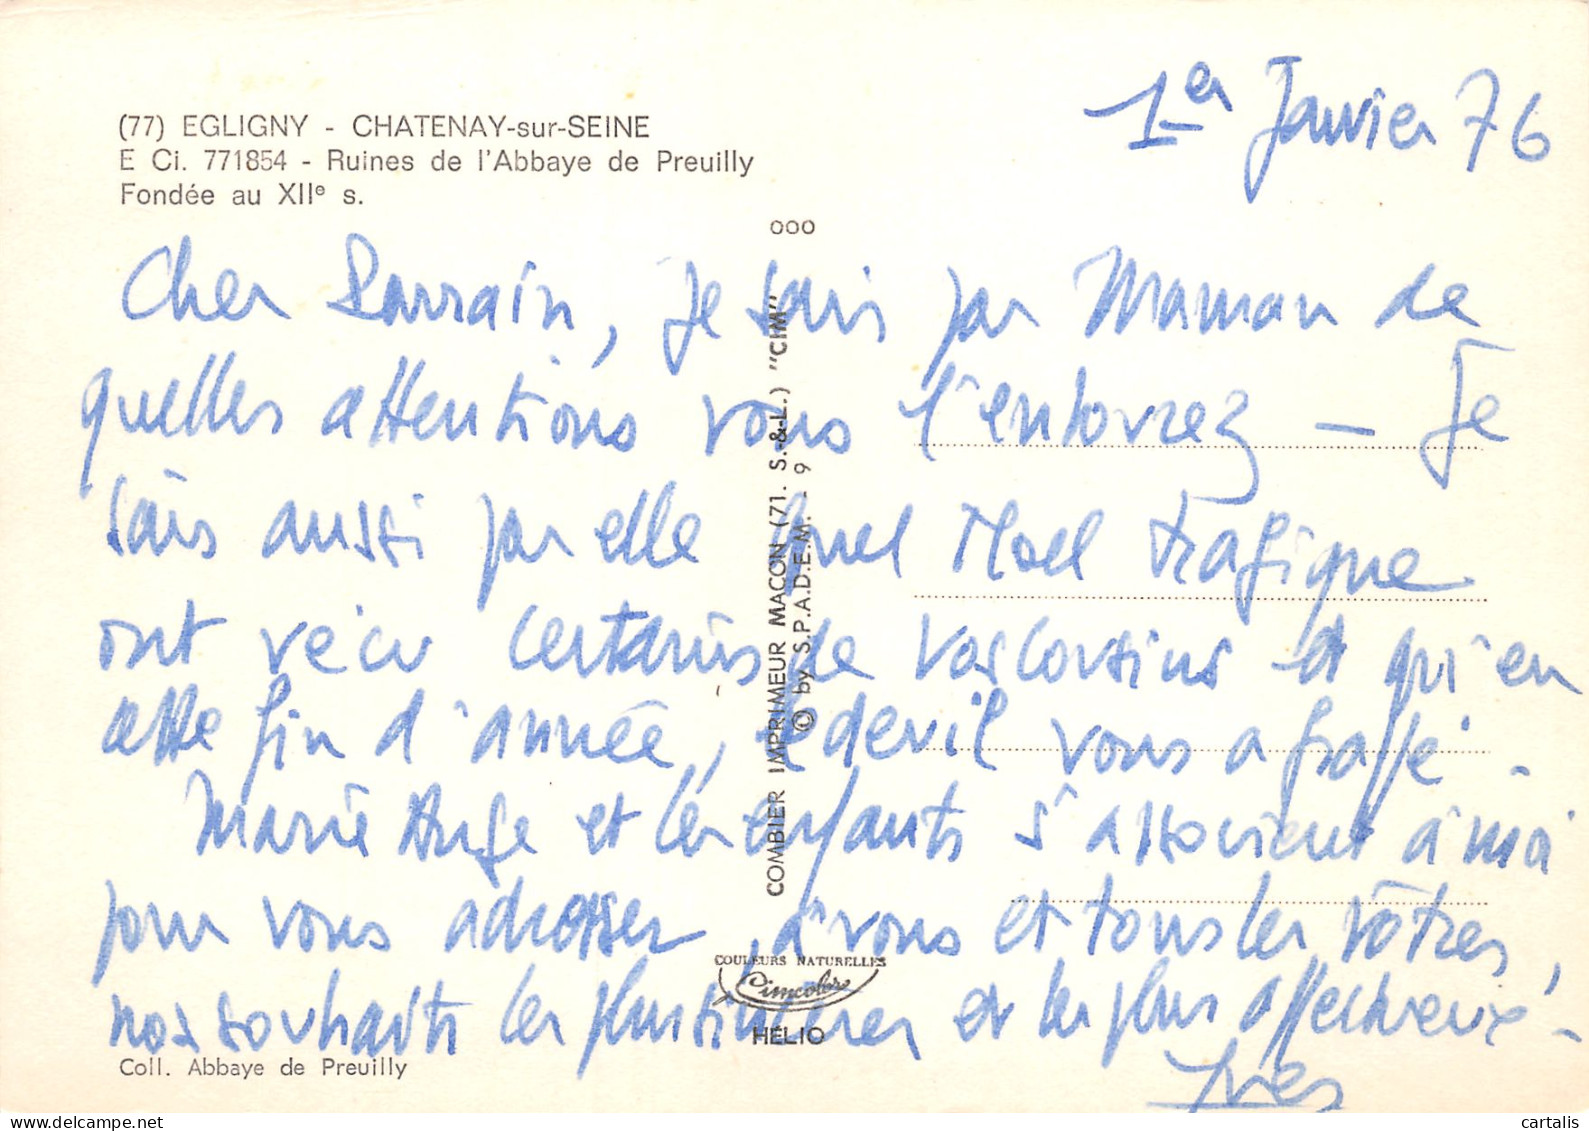 (77) EGLIGNY - CHATENAY-sur-SEINE
E Ci. 771854 - Ruines de l'Abbaye de Preuilly
Fondée au XIIe s.
1er Janvier 76
Cher Parrain, je sais par Maman de
quelles attentions vous l'entourez - Je
sais aussi par elle quel Noel tragique
ont vécu certains de vos cousins et qu'en
cette fin d'année, le deuil vous a frappé.
Marie Ange et les enfants s'associent à moi
pour vous adresser, à vous et tous les vôtres,
nos souhaits les plus sincères et les plus affectueux -
Yves
Coll. Abbaye de Preuilly
000
COMBIER IMPRIMEUR MACON (71. S.-&-L.) "CIM"
© by S.P.A.D.E.M. - 9
COULEURS NATURELLES
Cimcolor
HELIO
cartalis
delcampe.net